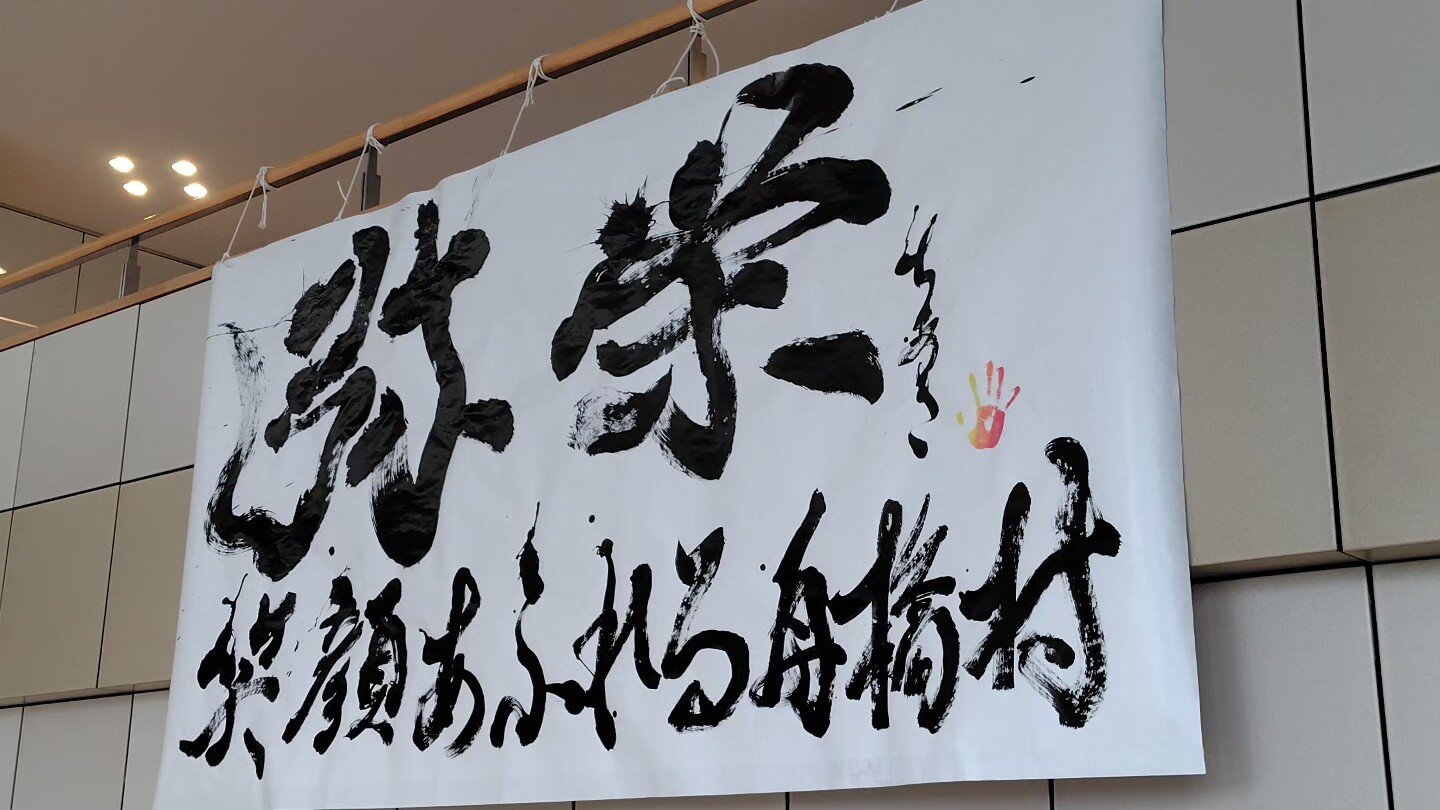 弥栄
笑顔あふれる舟橋村